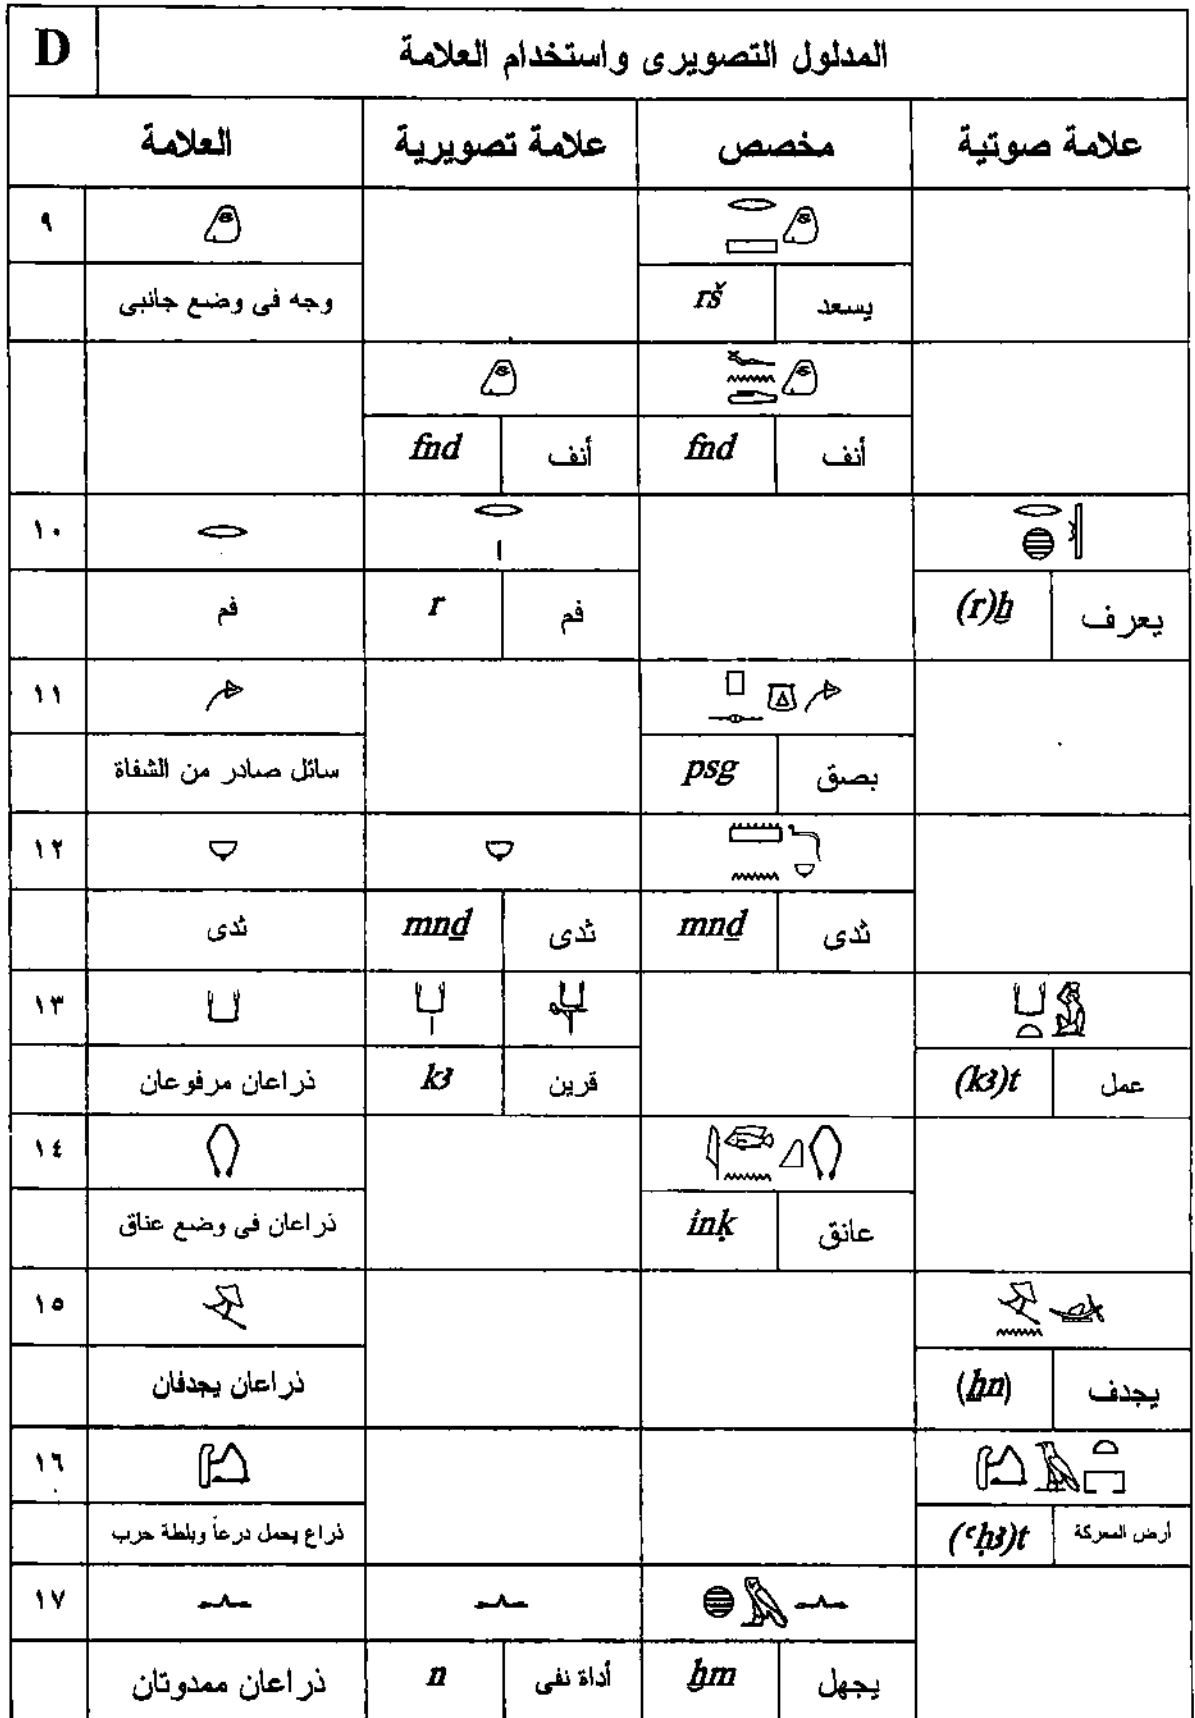 D المدلول التصويرى واستخدام العلامة
العلامة علامة تصويرية مخصص علامة صوتية
٩
وجه فى وضع جانبى rš يسعد
fnd أنف fnd أنف
١٠
فم r فم (r)ḫ يعرف
١١
سائل صادر من الشفاة psg بصق
١٢
ثدى mnḏ ثدى mnḏ ثدى
١٣
ذراعان مرفوعان kꜣ قرين (kꜣ)t عمل
١٤
ذراعان فى وضع عناق inḳ عانق
١٥
ذراعان يجدفان (ẖn) يجدف
١٦
ذراع يحمل درعاً وبلطة حرب (ꜥḥꜣ)t أرض المعركة
١٧
ذراعان ممدوتان n أداة نفى ḫm يجهل